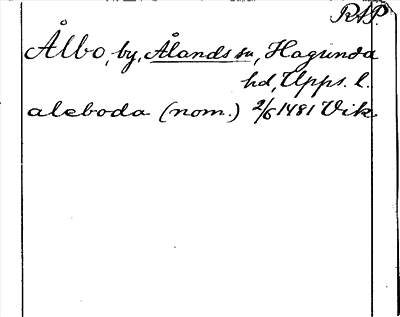 RAP.
Ålbo, by, Ålands sn, Hagunda
hd, Upps. l.
aleboda (nom.) 2/6 1481 Vik